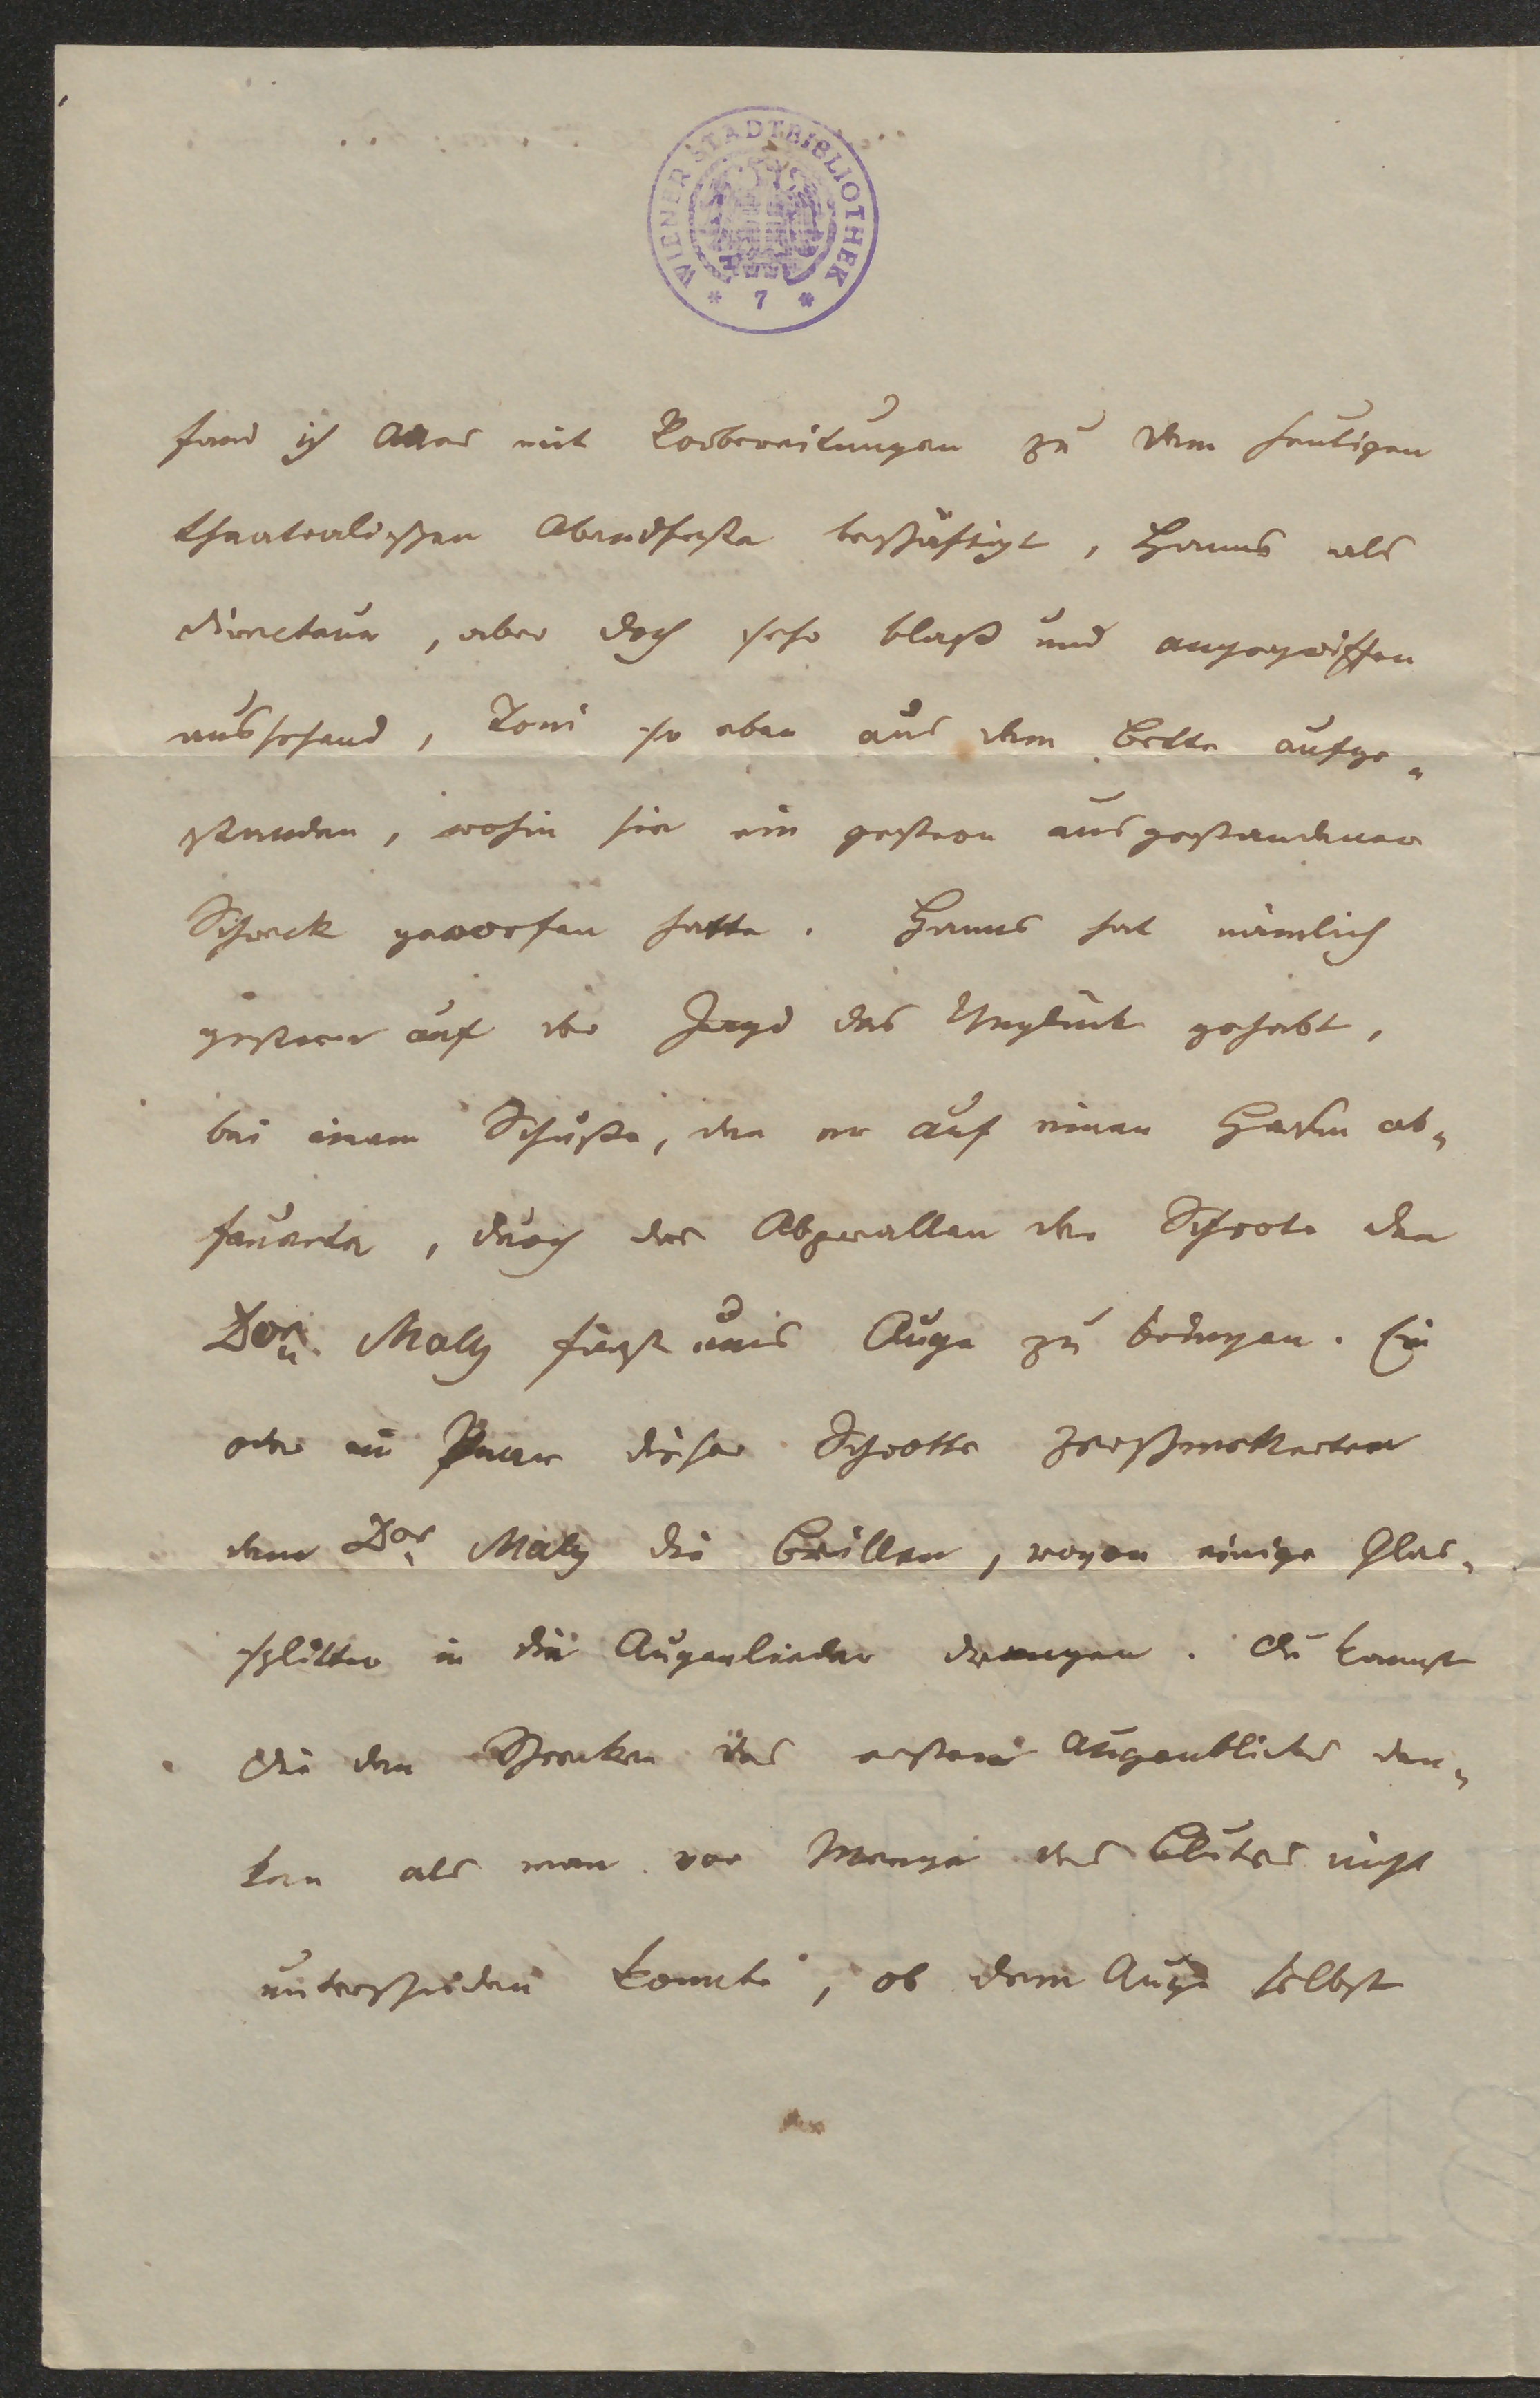 WIENER STADTBIBLIOTHEK
* 7 *
fand ich Alles mit Vorbereitungen zu dem heutigen
theatralischen Abendfeste beschäftigt, Hanns als
Directeur, aber doch sehr blaß und angegriffen
aussehend, Toni so eben aus dem Bette aufge-
standen, wohin sie ein gestern ausgestandener
Schreck geworfen hatte. Hanns hat nämlich
gestern auf der Jagd das Unglück gehabt,
bei einem Schuße, den er auf einen Hasen ab-
feuerte, durch das Abprallen der Schrote den
Dor. Maly fast ums Auge zu bringen. Ein
oder ein Paar dieser Schrotte zerschmetterten
dem Dor. Maly die Brillen, wovon einige Glas-
splitter in die Augenlieder drangen. Du kannst
Dir den Schrecken des ersten Augenblickes den-
ken als man vor Menge des Blutes nicht
unterscheiden konnte, ob dem Auge selbst